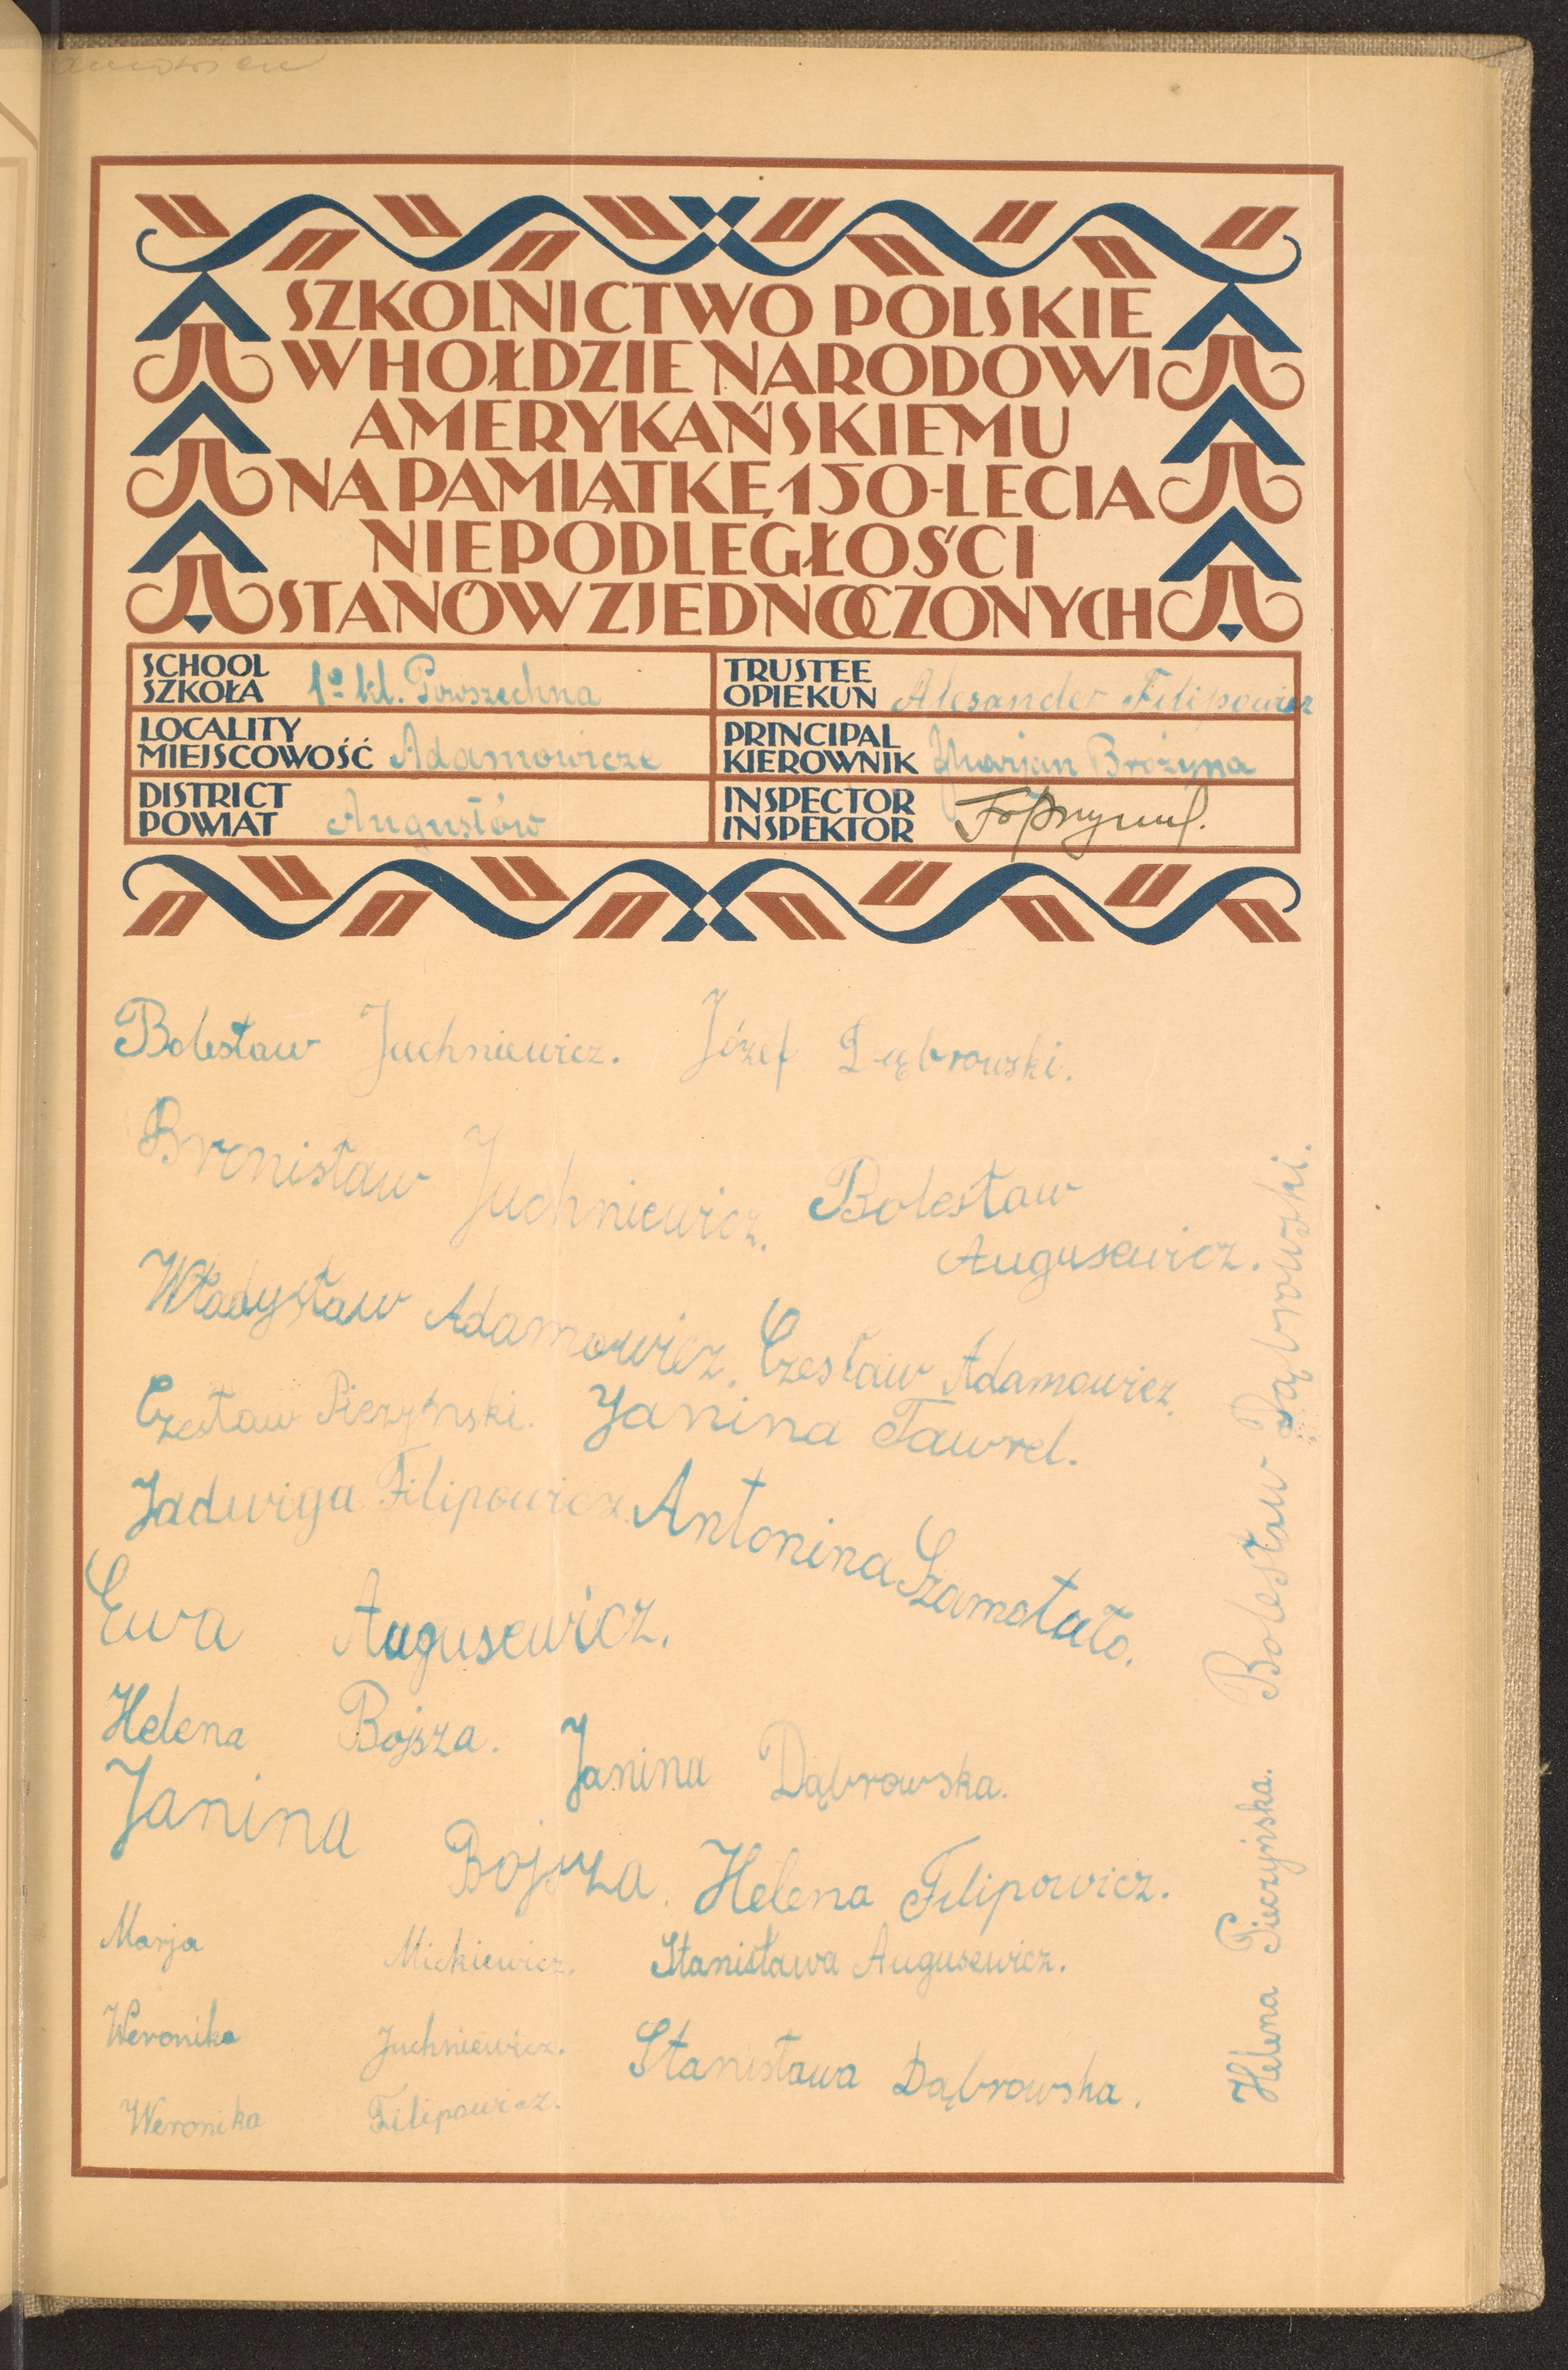 SZKOLNICTWO POLSKIE
W HOŁDZIE NARODOWI
AMERYKAŃSKIEMU
NA PAMIĄTKĘ 150-LECIA
NIEPODLEGŁOŚCI
STANÓW ZJEDNOCZONYCH
SCHOOL
SZKOŁA 1º kl. Powszechna
TRUSTEE
OPIEKUN Alesander Filipowicz
LOCALITY
MIEJSCOWOŚĆ Adamowicze
PRINCIPAL
KIEROWNIK Marjan Brożyna
DISTRICT
POWIAT Augustów
INSPECTOR
INSPEKTOR
Bolesław Juchniewicz. Józef Dąbrowski.
Bronisław Juchniewicz. Bolesław
Augusewicz.
Władysław Adamowicz. Czesław Adamowicz.
Czesław Pieczyński. Janina Tawrel.
Jadwiga Filipowicz. Antonina Szamotało.
Ewa Augusewicz.
Helena Bojsza. Janina Dąbrowska.
Janina Bojsza. Helena Filipowicz.
Marja Mickiewicz. Stanisława Augusewicz.
Weronika Juchniewicz. Stanisława Dąbrowska.
Weronika Filipowicz.
Helena Pieczyńska. Bolesław Dąbrowski.